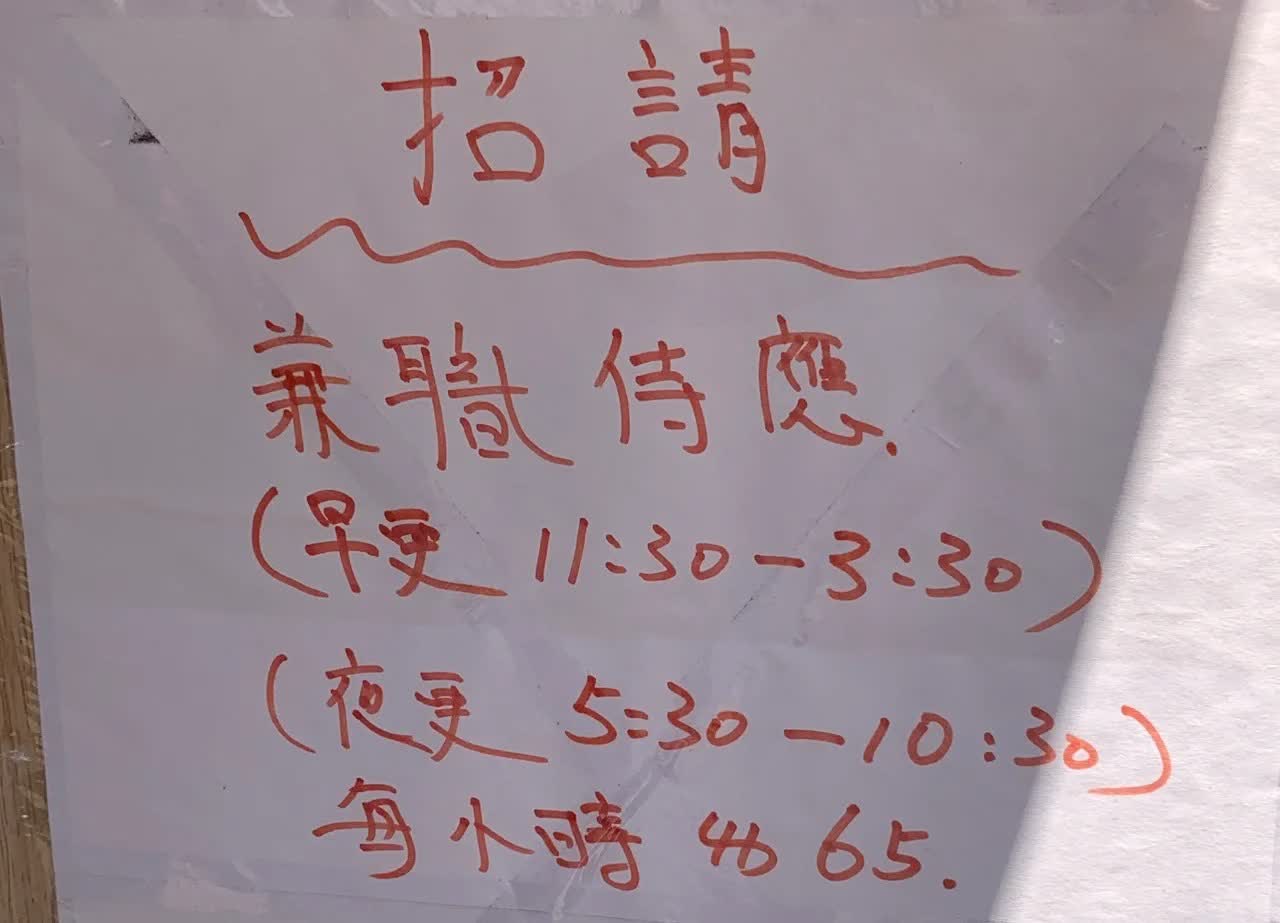 招請
兼職侍應.
(早更 11:30-3:30)
(夜更 5:30-10:30)
每小時 $65.